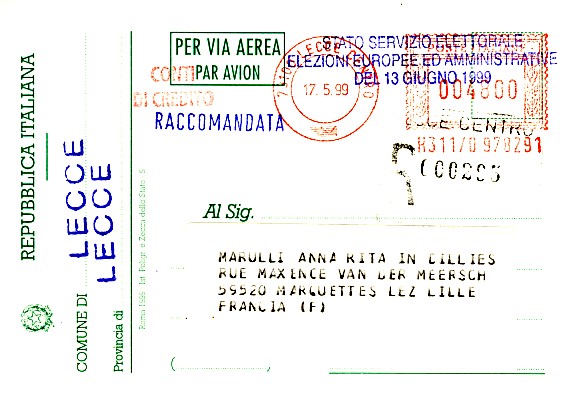 REPUBBLICA ITALIANA
COMUNE DI LECCE
Provincia di LECCE
PER VIA AEREA
PAR AVION
CONTI
DI CREDITO
RACCOMANDATA
LECCE
17.5.99
STATO SERVIZIO ELETTORALE
ELEZIONI EUROPEE ED AMMINISTRATIVE
DEL 13 GIUGNO 1999
004800
CENTRO
R
Al Sig.
MARULLI ANNA RITA IN GILLIES
RUE MAXENCE VAN DER MEERSCH
59520 MARQUETTES LEZ LILLE
FRANCIA (F)
( )